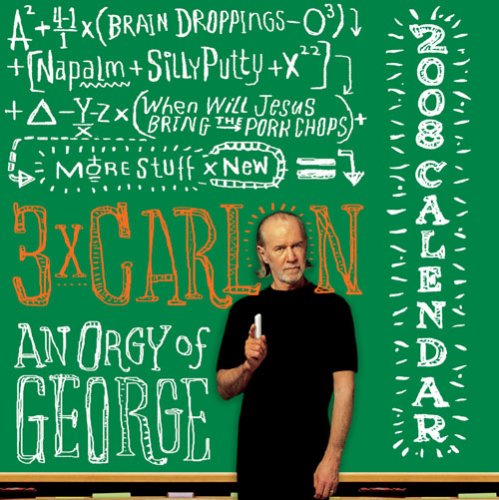 A² + 4-1/1 x (BRAIN DROPPINGS - O³)
+ [Napalm + Silly Putty + X²²]
+ Δ - Y-Z/X x (When Will Jesus BRING THE PORK CHOPS) +
MORE STUFF x New =
3xCARLIN
AN ORGY of
GEORGE
2008 CALENDAR